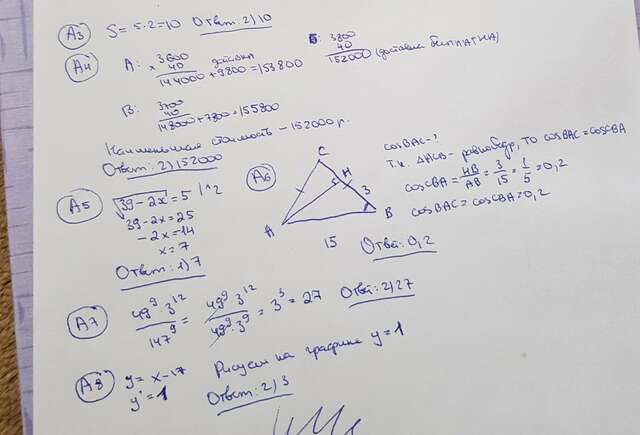 А3 S = 5·2=10 Ответ: 2) 10
А4 А: × 3600
40
144000 + 9800 = 153800
доставка
Б: 3800
40
152000 (доставка бесплатна)
В: 3700
40
148000 + 7800 = 155800
Наименьшая стоимость – 152000 р.
Ответ: 2) 152000
А5 √39-2x = 5 |^2
39-2x=25
-2x=-14
x=7
Ответ: 1) 7
А6
C
H
3
A
B
15
cosBAC-?
Т.к. ΔACB – равнобедр, то cosBAC = cosCBA
cosCBA = HB/AB = 3/15 = 1/5 = 0,2
cosBAC = cosCBA = 0,2
Ответ: 0,2
А7 49⁹·3¹²/147⁹ = 49⁹·3¹²/49⁹·3⁹ = 3³ = 27 Ответ: 2) 27
А8 y = x-17 Рисуем на графике y=1
y' = 1
Ответ: 2) 3